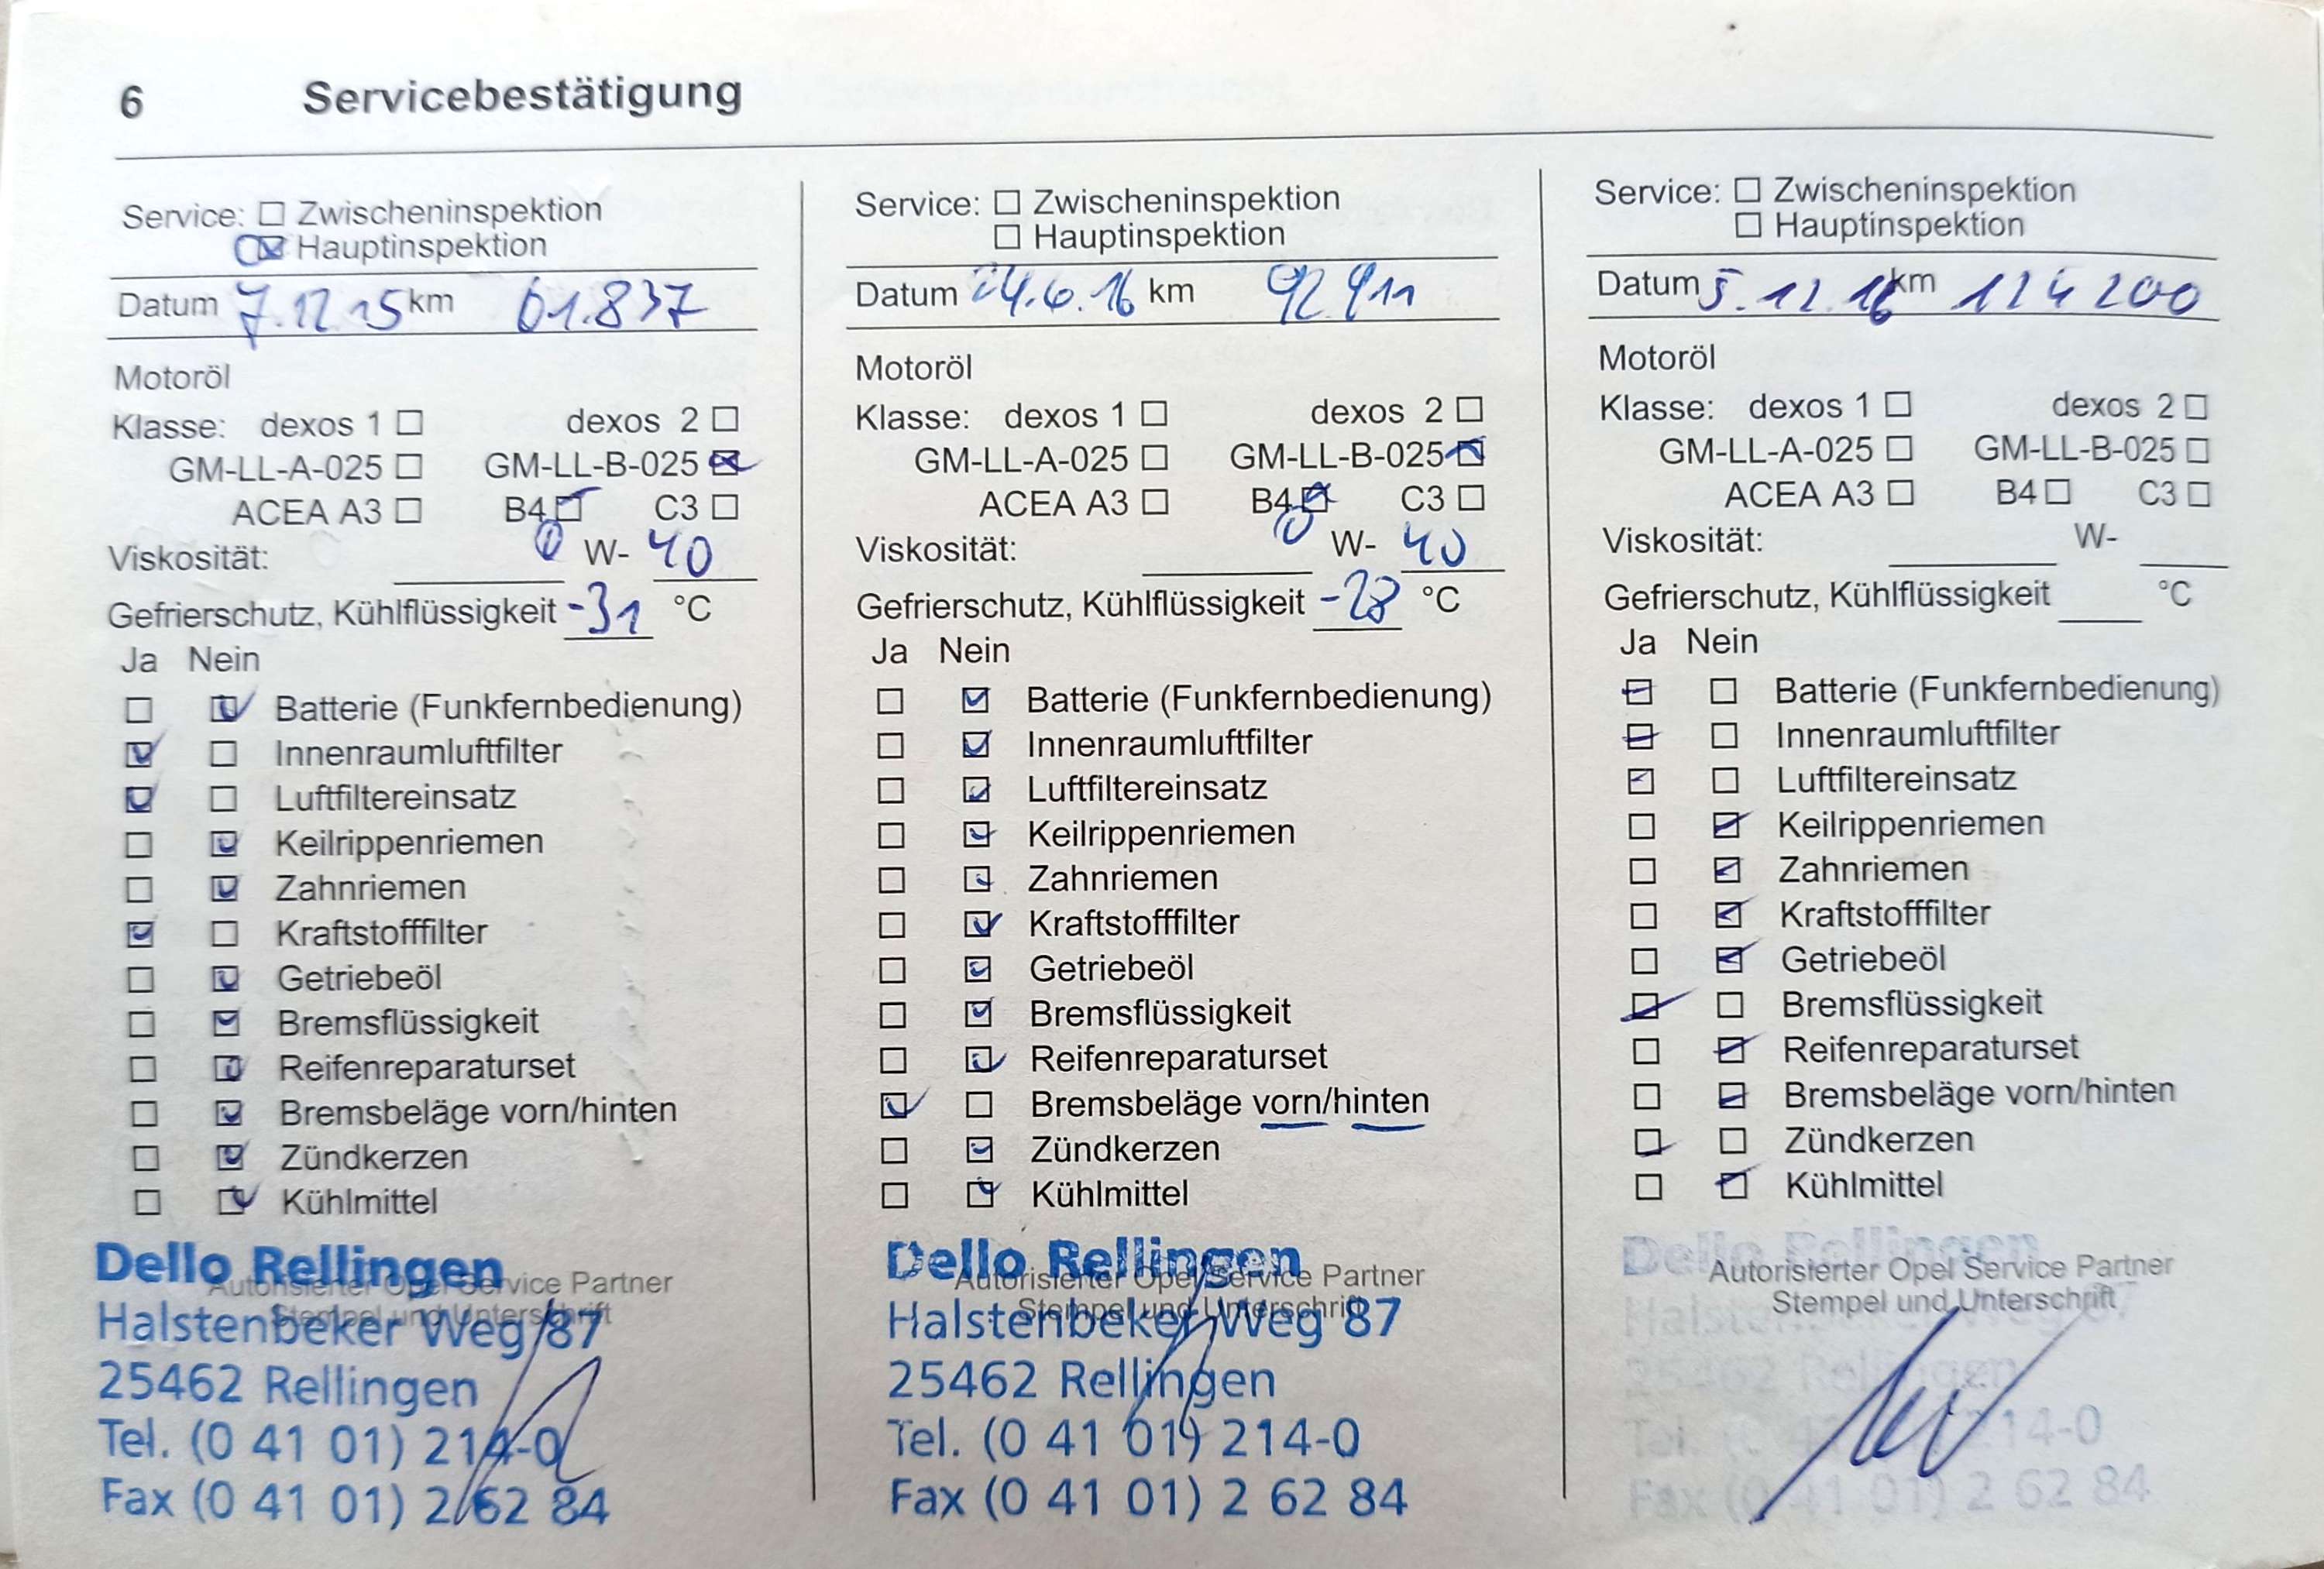 6 Servicebestätigung
Service: ☐ Zwischeninspektion
☒ Hauptinspektion
Datum 7.12.15 km 61.837
Motoröl
Klasse: dexos 1 ☐ dexos 2 ☐
GM-LL-A-025 ☐ GM-LL-B-025 ☒
ACEA A3 ☐ B4 ☑ C3 ☐
Viskosität: 0 W- 40
Gefrierschutz, Kühlflüssigkeit -31 °C
Ja Nein
☐ ☑ Batterie (Funkfernbedienung)
☑ ☐ Innenraumluftfilter
☑ ☐ Luftfiltereinsatz
☐ ☑ Keilrippenriemen
☐ ☑ Zahnriemen
☑ ☐ Kraftstofffilter
☐ ☑ Getriebeöl
☐ ☑ Bremsflüssigkeit
☐ ☑ Reifenreparaturset
☐ ☑ Bremsbeläge vorn/hinten
☐ ☑ Zündkerzen
☐ ☑ Kühlmittel
Dello Rellingen
Autorisierter Opel Service Partner
Stempel und Unterschrift
Halstenbeker Weg 87
25462 Rellingen
Tel. (0 41 01) 214-0
Fax (0 41 01) 2 62 84
Service: ☐ Zwischeninspektion
☐ Hauptinspektion
Datum 24.6.16 km 92 911
Motoröl
Klasse: dexos 1 ☐ dexos 2 ☐
GM-LL-A-025 ☐ GM-LL-B-025 ☑
ACEA A3 ☐ B4 ☑ C3 ☐
Viskosität: 0 W- 40
Gefrierschutz, Kühlflüssigkeit -28 °C
Ja Nein
☐ ☑ Batterie (Funkfernbedienung)
☐ ☑ Innenraumluftfilter
☐ ☑ Luftfiltereinsatz
☐ ☑ Keilrippenriemen
☐ ☑ Zahnriemen
☐ ☑ Kraftstofffilter
☐ ☑ Getriebeöl
☐ ☑ Bremsflüssigkeit
☐ ☑ Reifenreparaturset
☑ ☐ Bremsbeläge vorn/hinten
☐ ☑ Zündkerzen
☐ ☑ Kühlmittel
Dello Rellingen
Autorisierter Opel Service Partner
Stempel und Unterschrift
Halstenbeker Weg 87
25462 Rellingen
Tel. (0 41 01) 214-0
Fax (0 41 01) 2 62 84
Service: ☐ Zwischeninspektion
☐ Hauptinspektion
Datum 5.12.16 km 124 200
Motoröl
Klasse: dexos 1 ☐ dexos 2 ☐
GM-LL-A-025 ☐ GM-LL-B-025 ☐
ACEA A3 ☐ B4 ☐ C3 ☐
Viskosität: W-
Gefrierschutz, Kühlflüssigkeit °C
Ja Nein
☑ ☐ Batterie (Funkfernbedienung)
☑ ☐ Innenraumluftfilter
☑ ☐ Luftfiltereinsatz
☐ ☑ Keilrippenriemen
☐ ☑ Zahnriemen
☐ ☑ Kraftstofffilter
☐ ☑ Getriebeöl
☑ ☐ Bremsflüssigkeit
☐ ☑ Reifenreparaturset
☐ ☑ Bremsbeläge vorn/hinten
☑ ☐ Zündkerzen
☐ ☑ Kühlmittel
Dello Rellingen
Autorisierter Opel Service Partner
Stempel und Unterschrift
Halstenbeker Weg 87
25462 Rellingen
Tel. (0 41 01) 214-0
Fax (0 41 01) 2 62 84